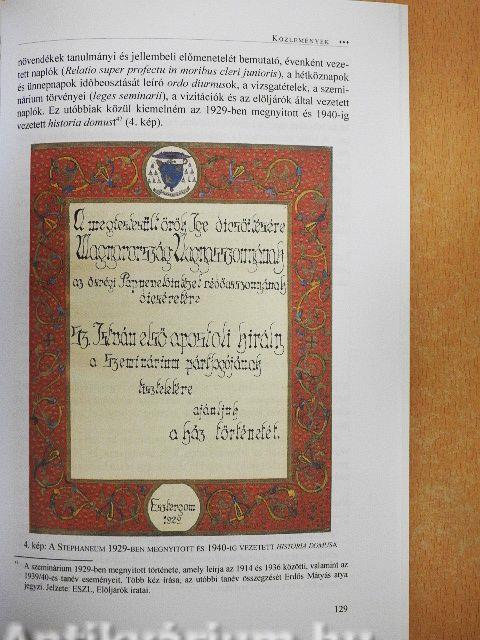 KÖZLEMÉNYEK •••
növendékek tanulmányi és jellembeli előmenetelét bemutató, évenként veze-
tett naplók (Relatio super profectu in moribus cleri junioris), a hétköznapok
és ünnepnapok időbeosztását leíró ordo diurnusok, a vizsgatételek, a szemi-
nárium törvényei (leges seminarii), a vizitációk és az elöljárók által vezetett
naplók. Ez utóbbiak közül kiemelném az 1929-ben megnyitott és 1940-ig
vezetett historia domust47 (4. kép).
A megtestesült örök Ige dicsőítésére
Magyarország Nagyasszonyának
az ősrégi Papnevelőintézet védőasszonyának
dicséretére
Sz. István első apostoli király
a Szeminárium pártfogójának
tiszteletére
ajánljuk
a ház történetét.
Esztergom
1929
4. kép: A STEPHANEUM 1929-BEN MEGNYITOTT ÉS 1940-IG VEZETETT HISTORIA DOMUSA
47 A szeminárium 1929-ben megnyitott története, amely leírja az 1914 és 1936 közötti, valamint az
1939/40-es tanév eseményeit. Több kéz írása, az utóbbi tanév összegzését Erdős Mátyás atya
jegyzi. Jelzete: ESZL, Elöljárók iratai.
129
Antikvárium.hu